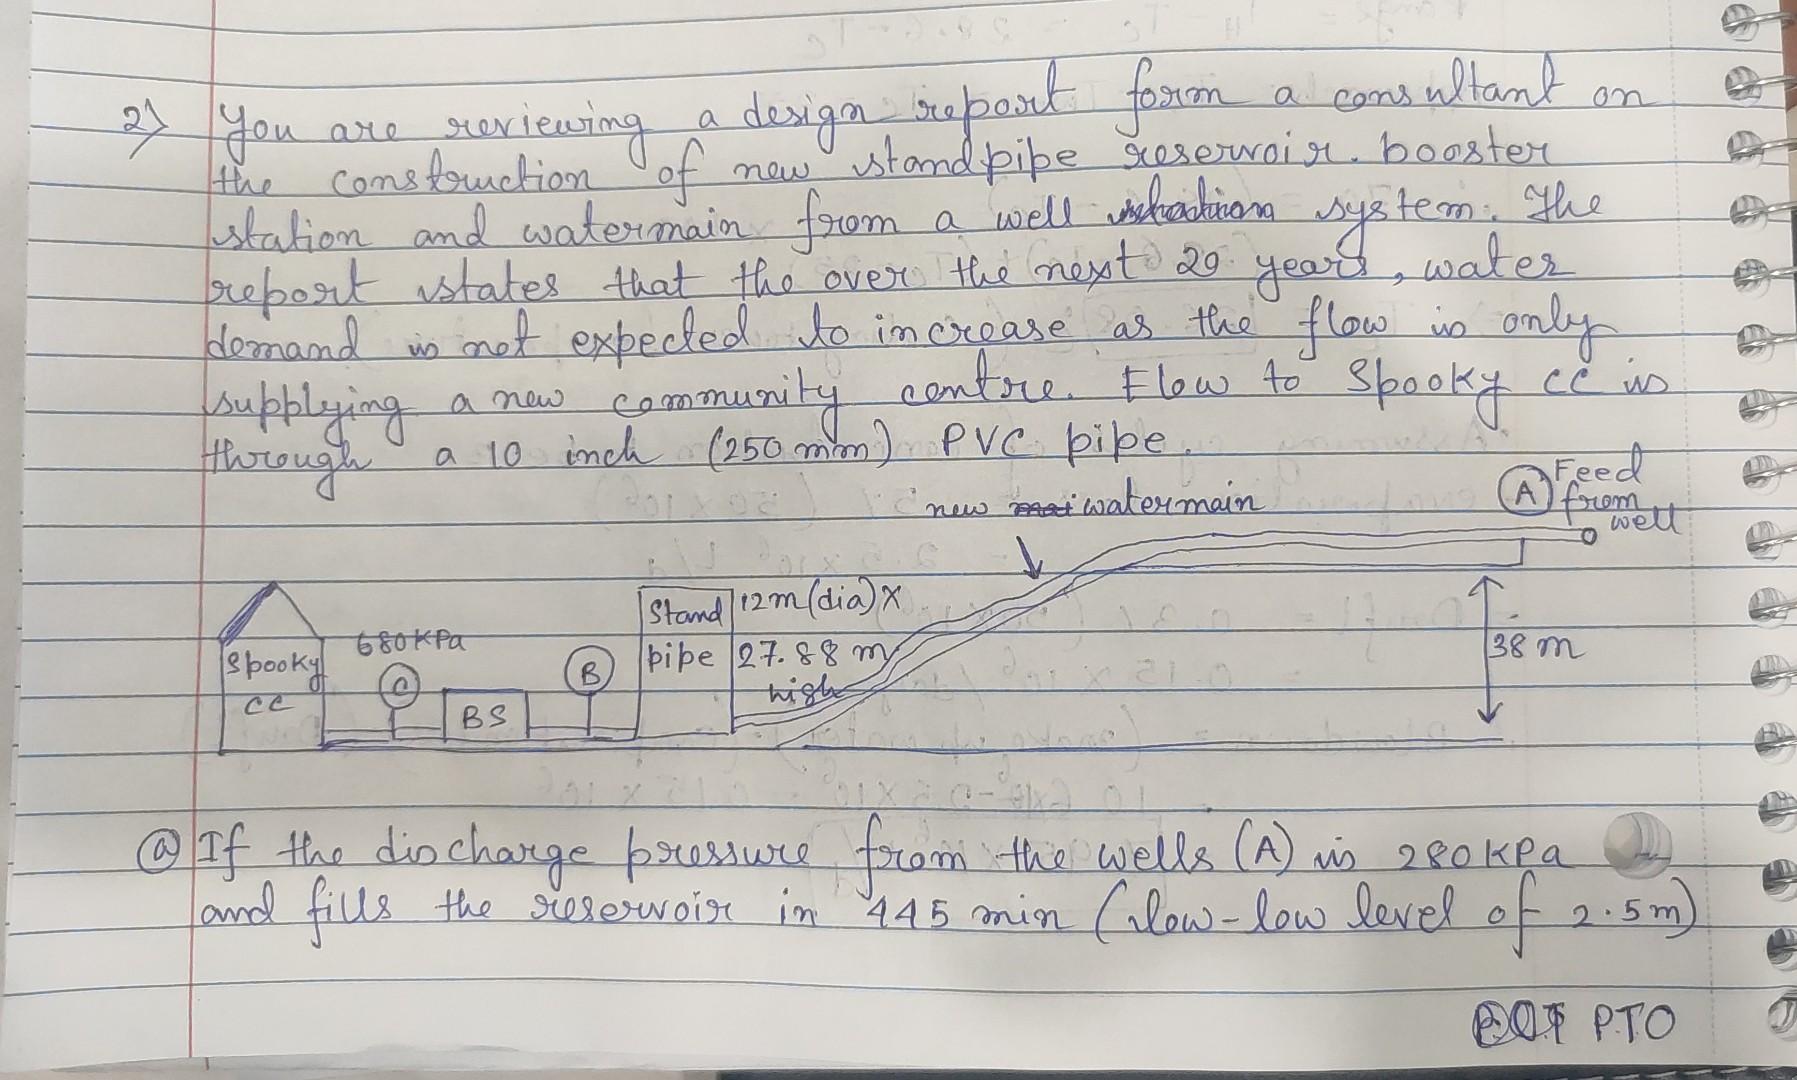 2) You are reviewing a design report form a consultant on
the construction of new standpipe reservoir. booster
station and watermain from a well system. The
report states that the over the next 20 years, water
demand is not expected to increase as the flow is only
supplying a new community centre. Flow to Spooky CC is
through a 10 inch (250 mm) PVC pipe.
new watermain
A Feed
from
well
Stand 12m (dia) X
pipe 27.88 m
high
38 m
680 KPa
Spooky
CC
C
BS
B
a) If the discharge pressure from the wells (A) is 280 KPa
and fills the reservoir in 445 min (low-low level of 2.5m)
PTO